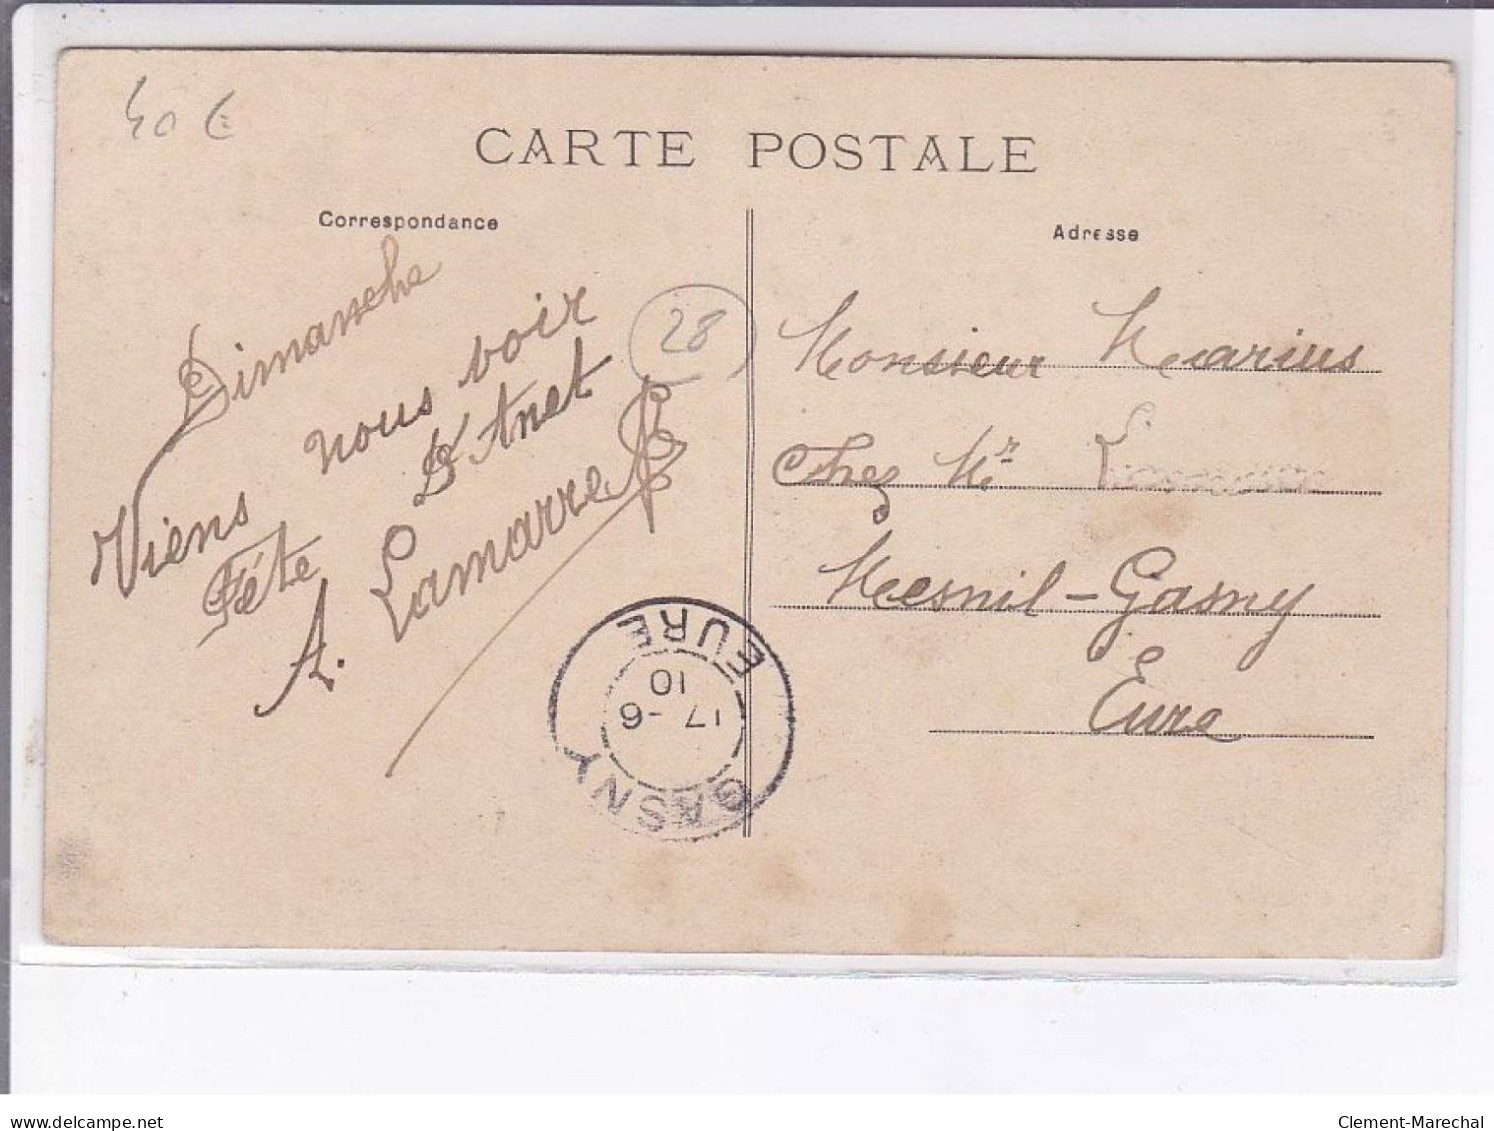 40 €
CARTE POSTALE
Correspondance
Adresse
28
Viens nous voir
Dimanche
Fête D'Anet
A. Lamarre
Monsieur Marius
Chez Mr
Mesnil-Gasny
Eure
GASNY
17 - 6
10
EURE
www.delcampe.net
Clement-Marechal